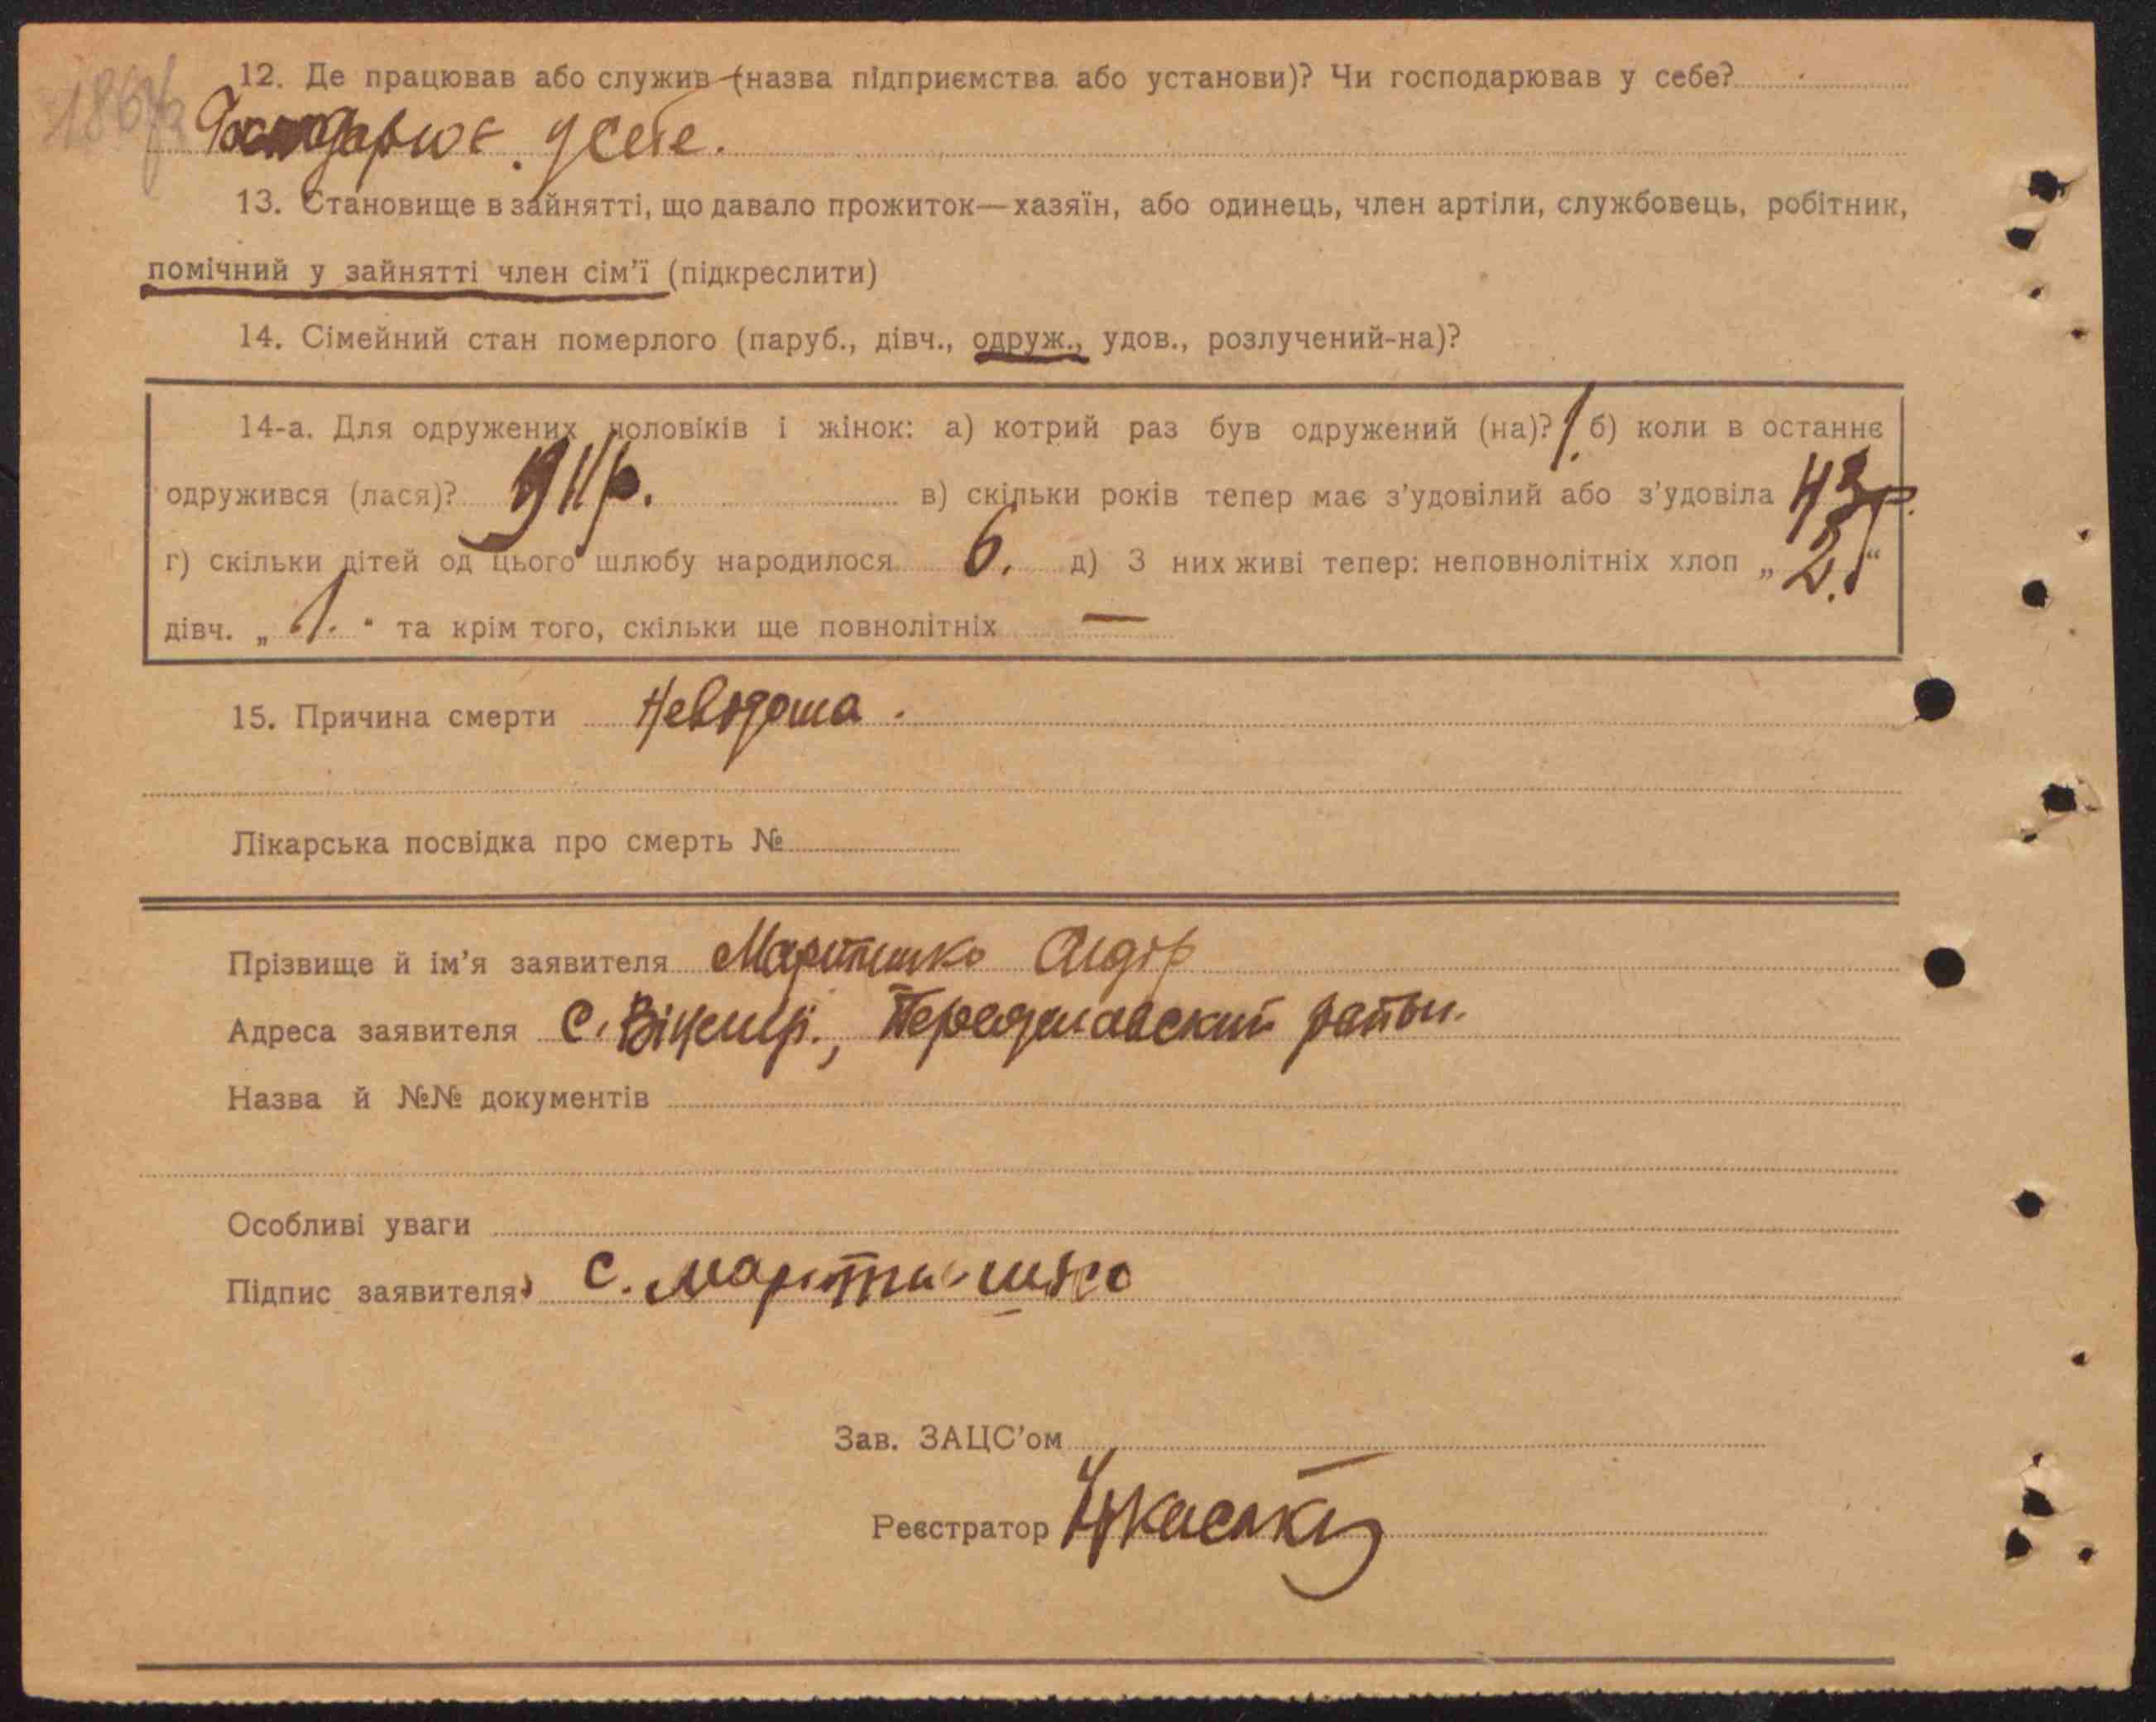 12. Де працював або служив (назва підприємства або установи)? Чи господарював у себе?
Господарює у себе.
13. Становище в зайнятті, що давало прожиток—хазяїн, або одинець, член артіли, службовець, робітник,
помічний у зайнятті член сім’ї (підкреслити)
14. Сімейний стан померлого (паруб., дівч., одруж., удов., розлучений-на)?
14-а. Для одружених чоловіків і жінок: а) котрий раз був одружений (на)? 1. б) коли в останнє
одружився (лася)? 1911 р. в) скільки років тепер має з’удовілий або з’удовіла 43 р.
г) скільки дітей од цього шлюбу народилося 6. д) З них живі тепер: неповнолітніх хлоп „ 2. “
дівч. „ 1. “ та крім того, скільки ще повнолітніх —
15. Причина смерти Невідома.
Лікарська посвідка про смерть №
Прізвище й ім’я заявителя Мартишко Сидір
Адреса заявителя с. Переяславский район.
Назва й №№ документів
Особливі уваги
Підпис заявителя С. Мартишко
Зав. ЗАЦС’ом
Реєстратор